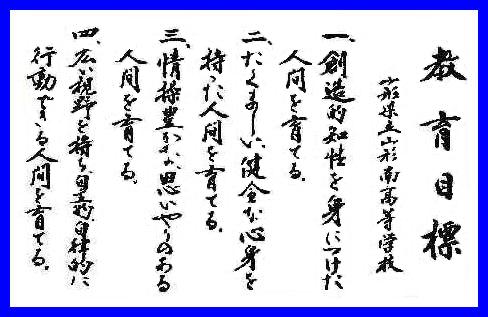 教育目標
山形県立山形南高等学校
一、創造的知性を身につけた
人間を育てる。
二、たくましい、健全な心身を
持った人間を育てる。
三、情操豊かな思いやりのある
人間を育てる。
四、広い視野を持ち、自主的、自律的に
行動できる人間を育てる。